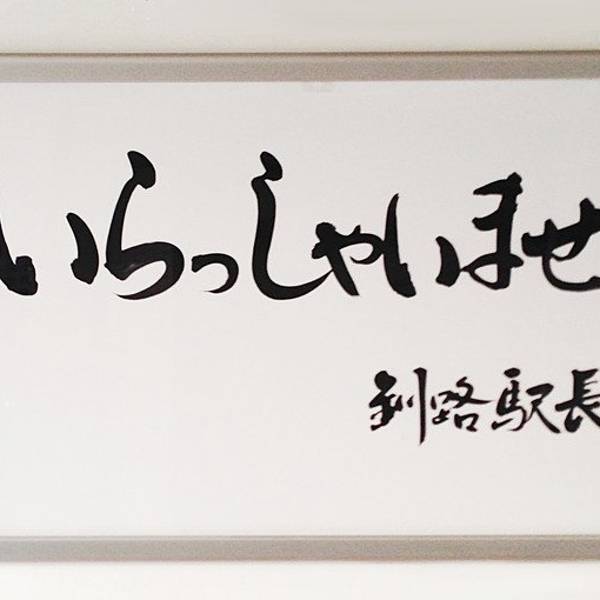 いらっしゃいませ
釧路駅長